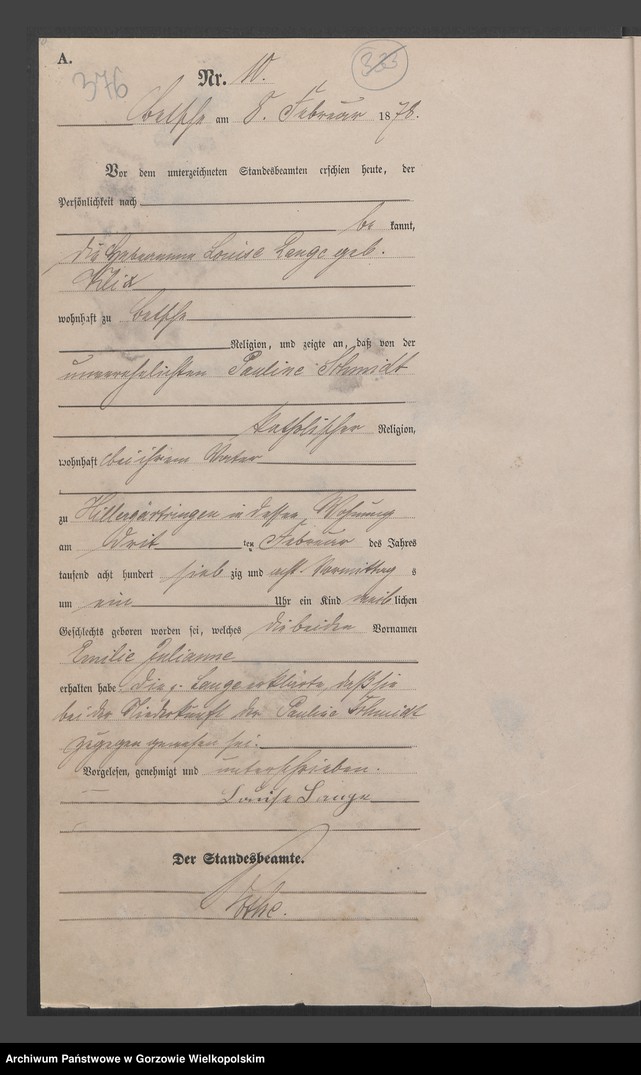 A.
376
333
Nr. 10.
Betsche am 8. Februar 1878.
Vor dem unterzeichneten Standesbeamten erschien heute, der
Persönlichkeit nach
be kannt,
die Hebeamme Louise Lange geb.
Klix
wohnhaft zu Betsche
Religion, und zeigte an, daß von der
unverehelichten Pauline Schmidt
katholischer Religion,
wohnhaft bei ihrem Vater
zu Hillergärtringen in dessen Wohnung
am drit ten Februar des Jahres
tausend acht hundert sieb zig und acht Vormittag s
um ein Uhr ein Kind weib lichen
Geschlechts geboren worden sei, welches die beiden Vornamen
Emilie Julianne
erhalten habe. Die Lange erklärte, daß sie
bei der Niederkunft der Pauline Schmidt
zugegen gewesen sei.
Vorgelesen, genehmigt und unterschrieben.
Louise Lange
Der Standesbeamte.
Archiwum Państwowe w Gorzowie Wielkopolskim